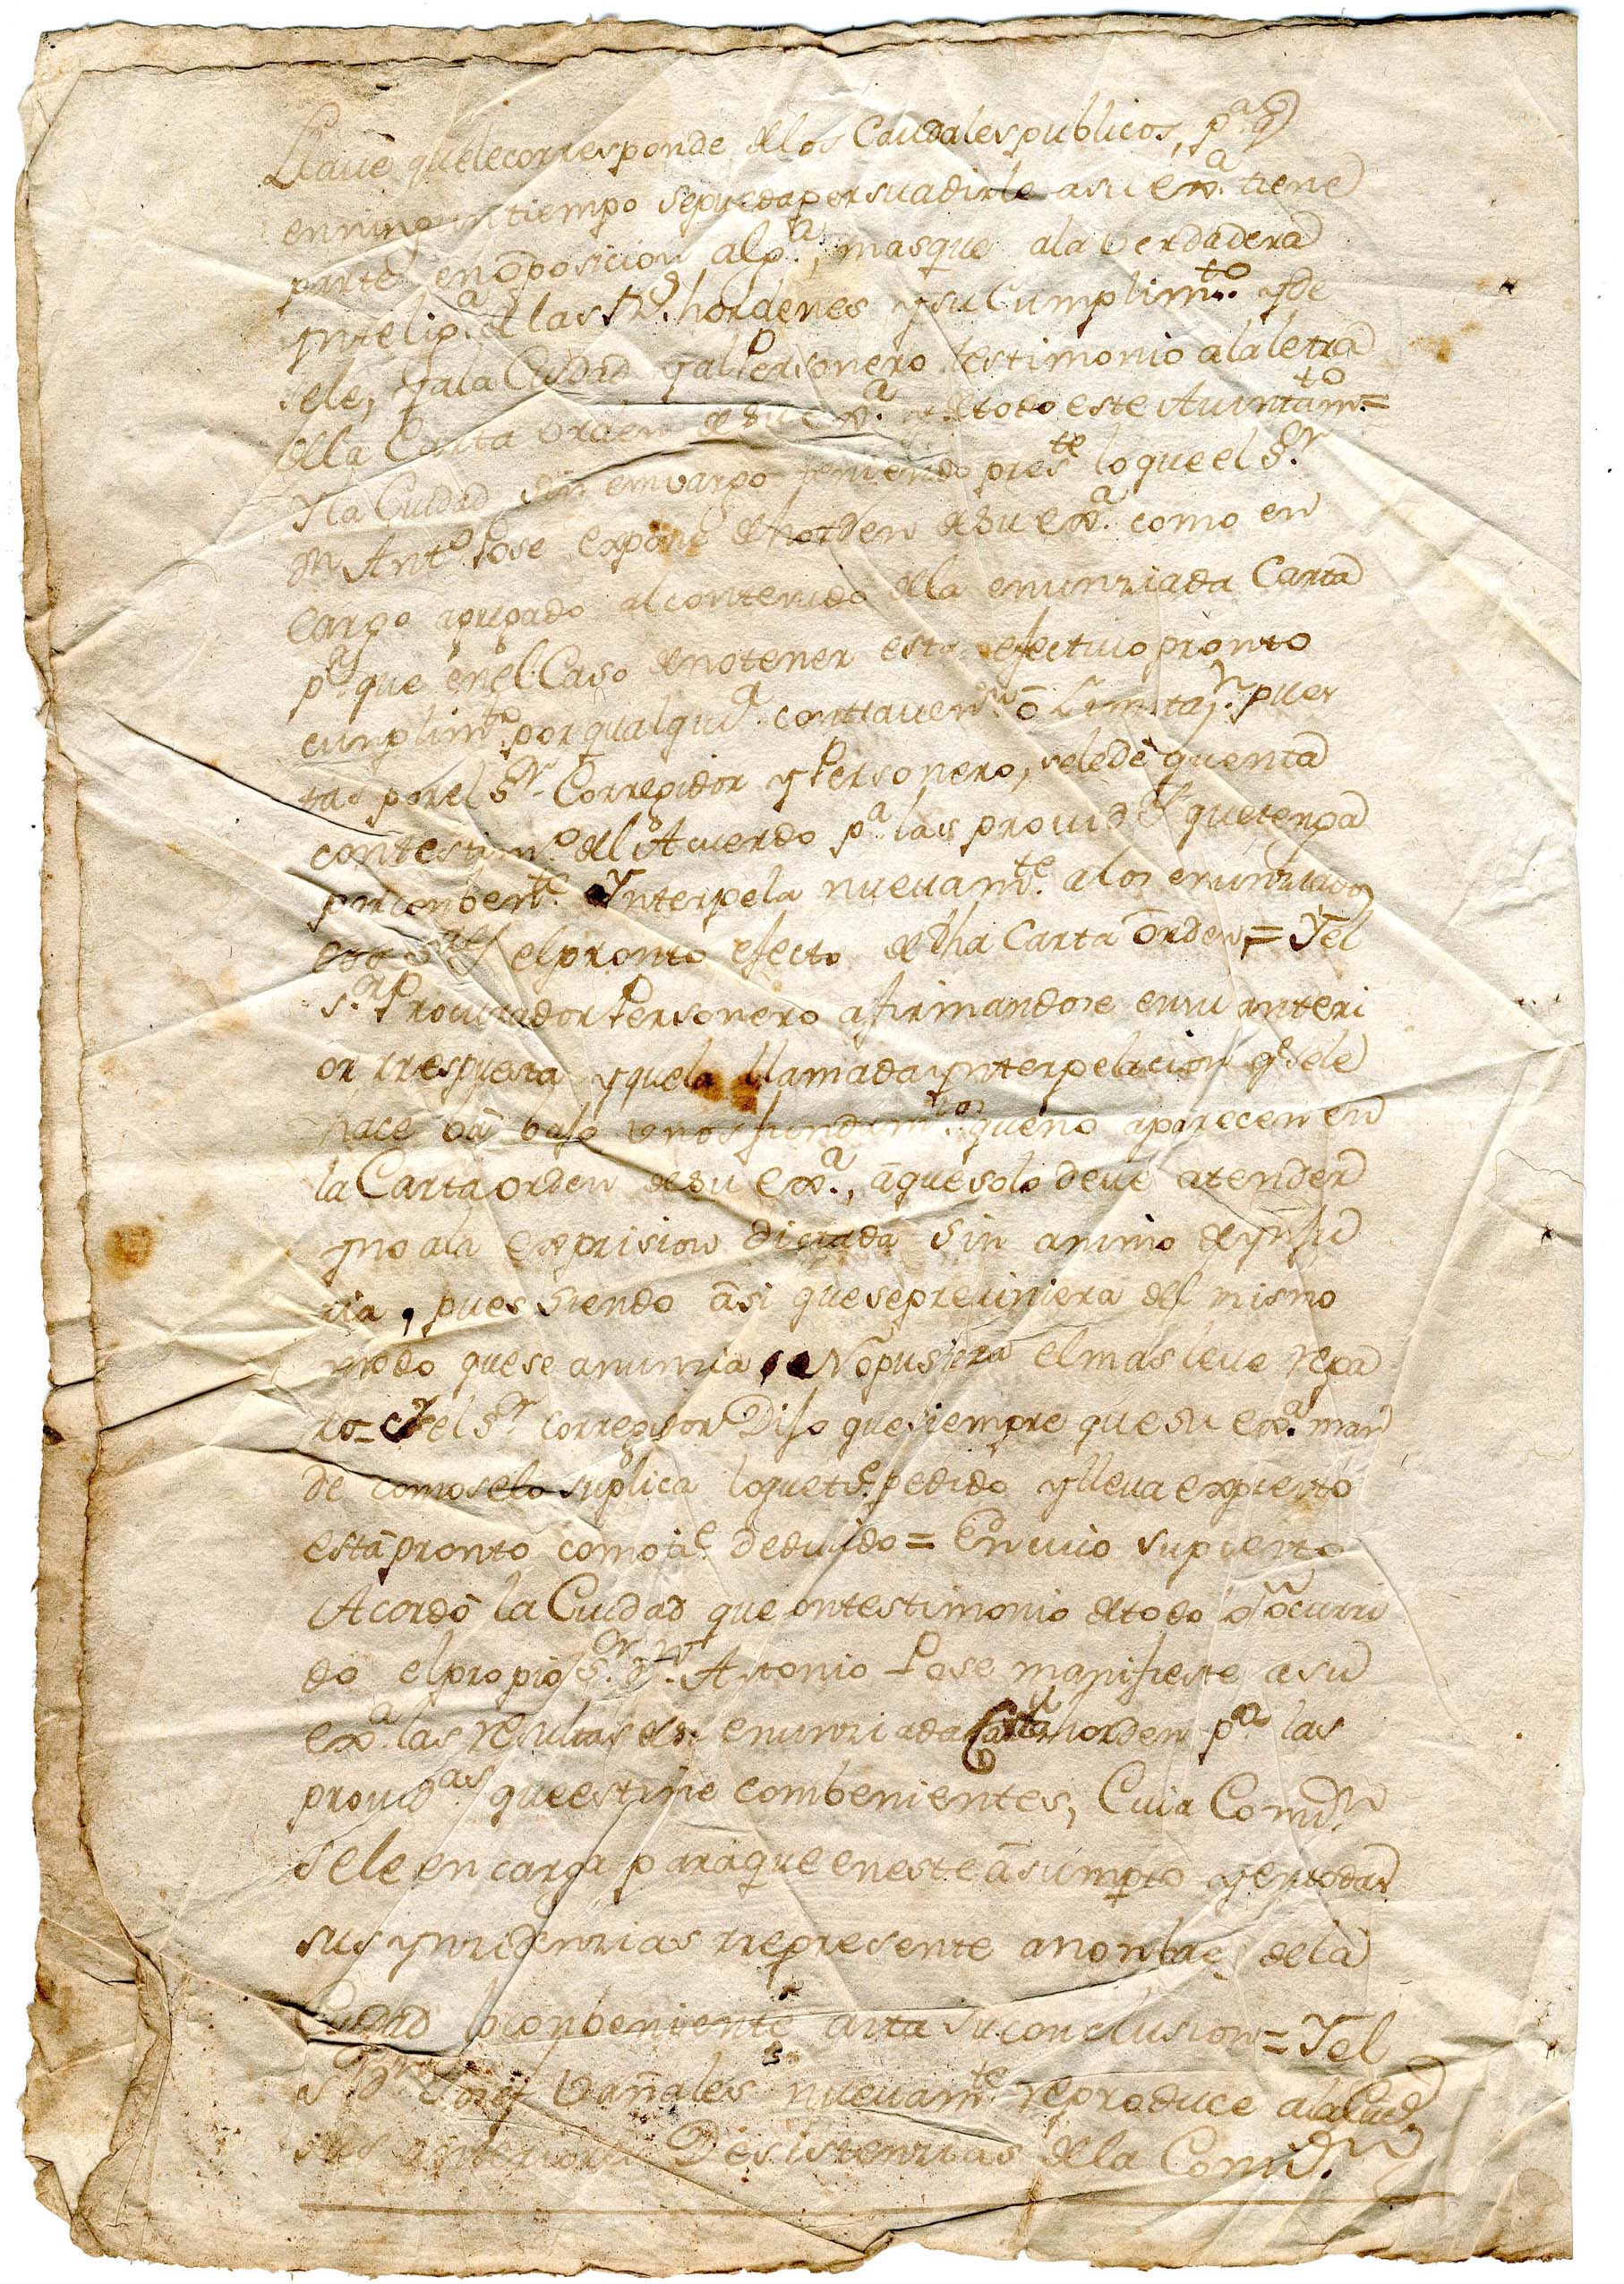 Llave que le corresponde de los Caudales publicos, p.ª q.
en ningun tiempo se pueda persuadirle a su Ex.ª tiene
parte en oposicion alg.ª, mas que a la verdadera
yntelig.ª de las R.s hordenes y su Cumplim.to y de
sele, y a la Ciudad y al Personero testimonio a la letra
de lla Carta orden de su Ex.ª y de todo este Aiuntam.to =
Y la Ciudad sin emvargo teniendo pres.te lo que el S.r
Dn Ant.º Jose expone de horden de su Ex.ª como en
cargo agregado al contenido de lla enunziada Carta
p.ª que en el Caso de no tener esto efectivo pronto
cunplim.to por qualqui.ª contraven.n ô Limitaz.n pues
tas por el S.r Corregidor y Personero, se le dè quenta
con testim.º del Acuerdo p.ª las provid.as que tenga
por conben.te Ynterpela nuevam.te a los enunziados
S.res el pronto efecto de dha Carta ōrden = Y el
S.r Procurador Personero afirmandose en su anteri
or rrespuesta y que la llamada ynterpelacion q.e se le
hace vâ bajo unos fundam.tos que no aparecen en
la Carta orden de su Ex.ª, â que solo deve atender
y no a la exprision dictada sin animo de ynju
ria, pues siendo âsi que se previniera del mismo
modo que se anunzia no pusiera el mas leve repa
ro = Y el S.r Corregidor Dijo que siempre que su Ex.ª man
de como se lo suplica lo que ti.e pedido y lleva expuesto
estâ pronto como ti.e deduzido = En cuio supuesto
Acordô la Ciudad que con testimonio de todo lo ôcurri
do el propio S.r D.n Antonio Jose manifieste a su
Ex.ª las resultas de su enunziada Carta orden p.ª las
provid.as que estime combenientes, Cuia Comi.on
se le encarga para que en este âsumpto y en todas
sus ynzidenzias rrepresente a nonbre de la
Ciudad lo conbeniente asta su conclusion = Y el
S.r Dn Josef Vañales nuevam.te reproduce a la Ciud.
sus anteriores Desistenzias de la Comi.on